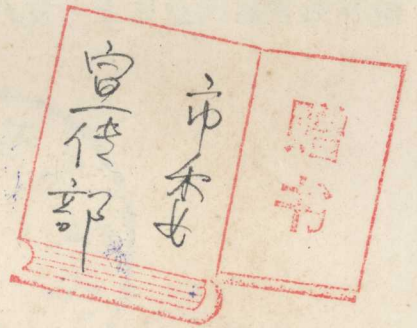 赠书
市委
宣传部